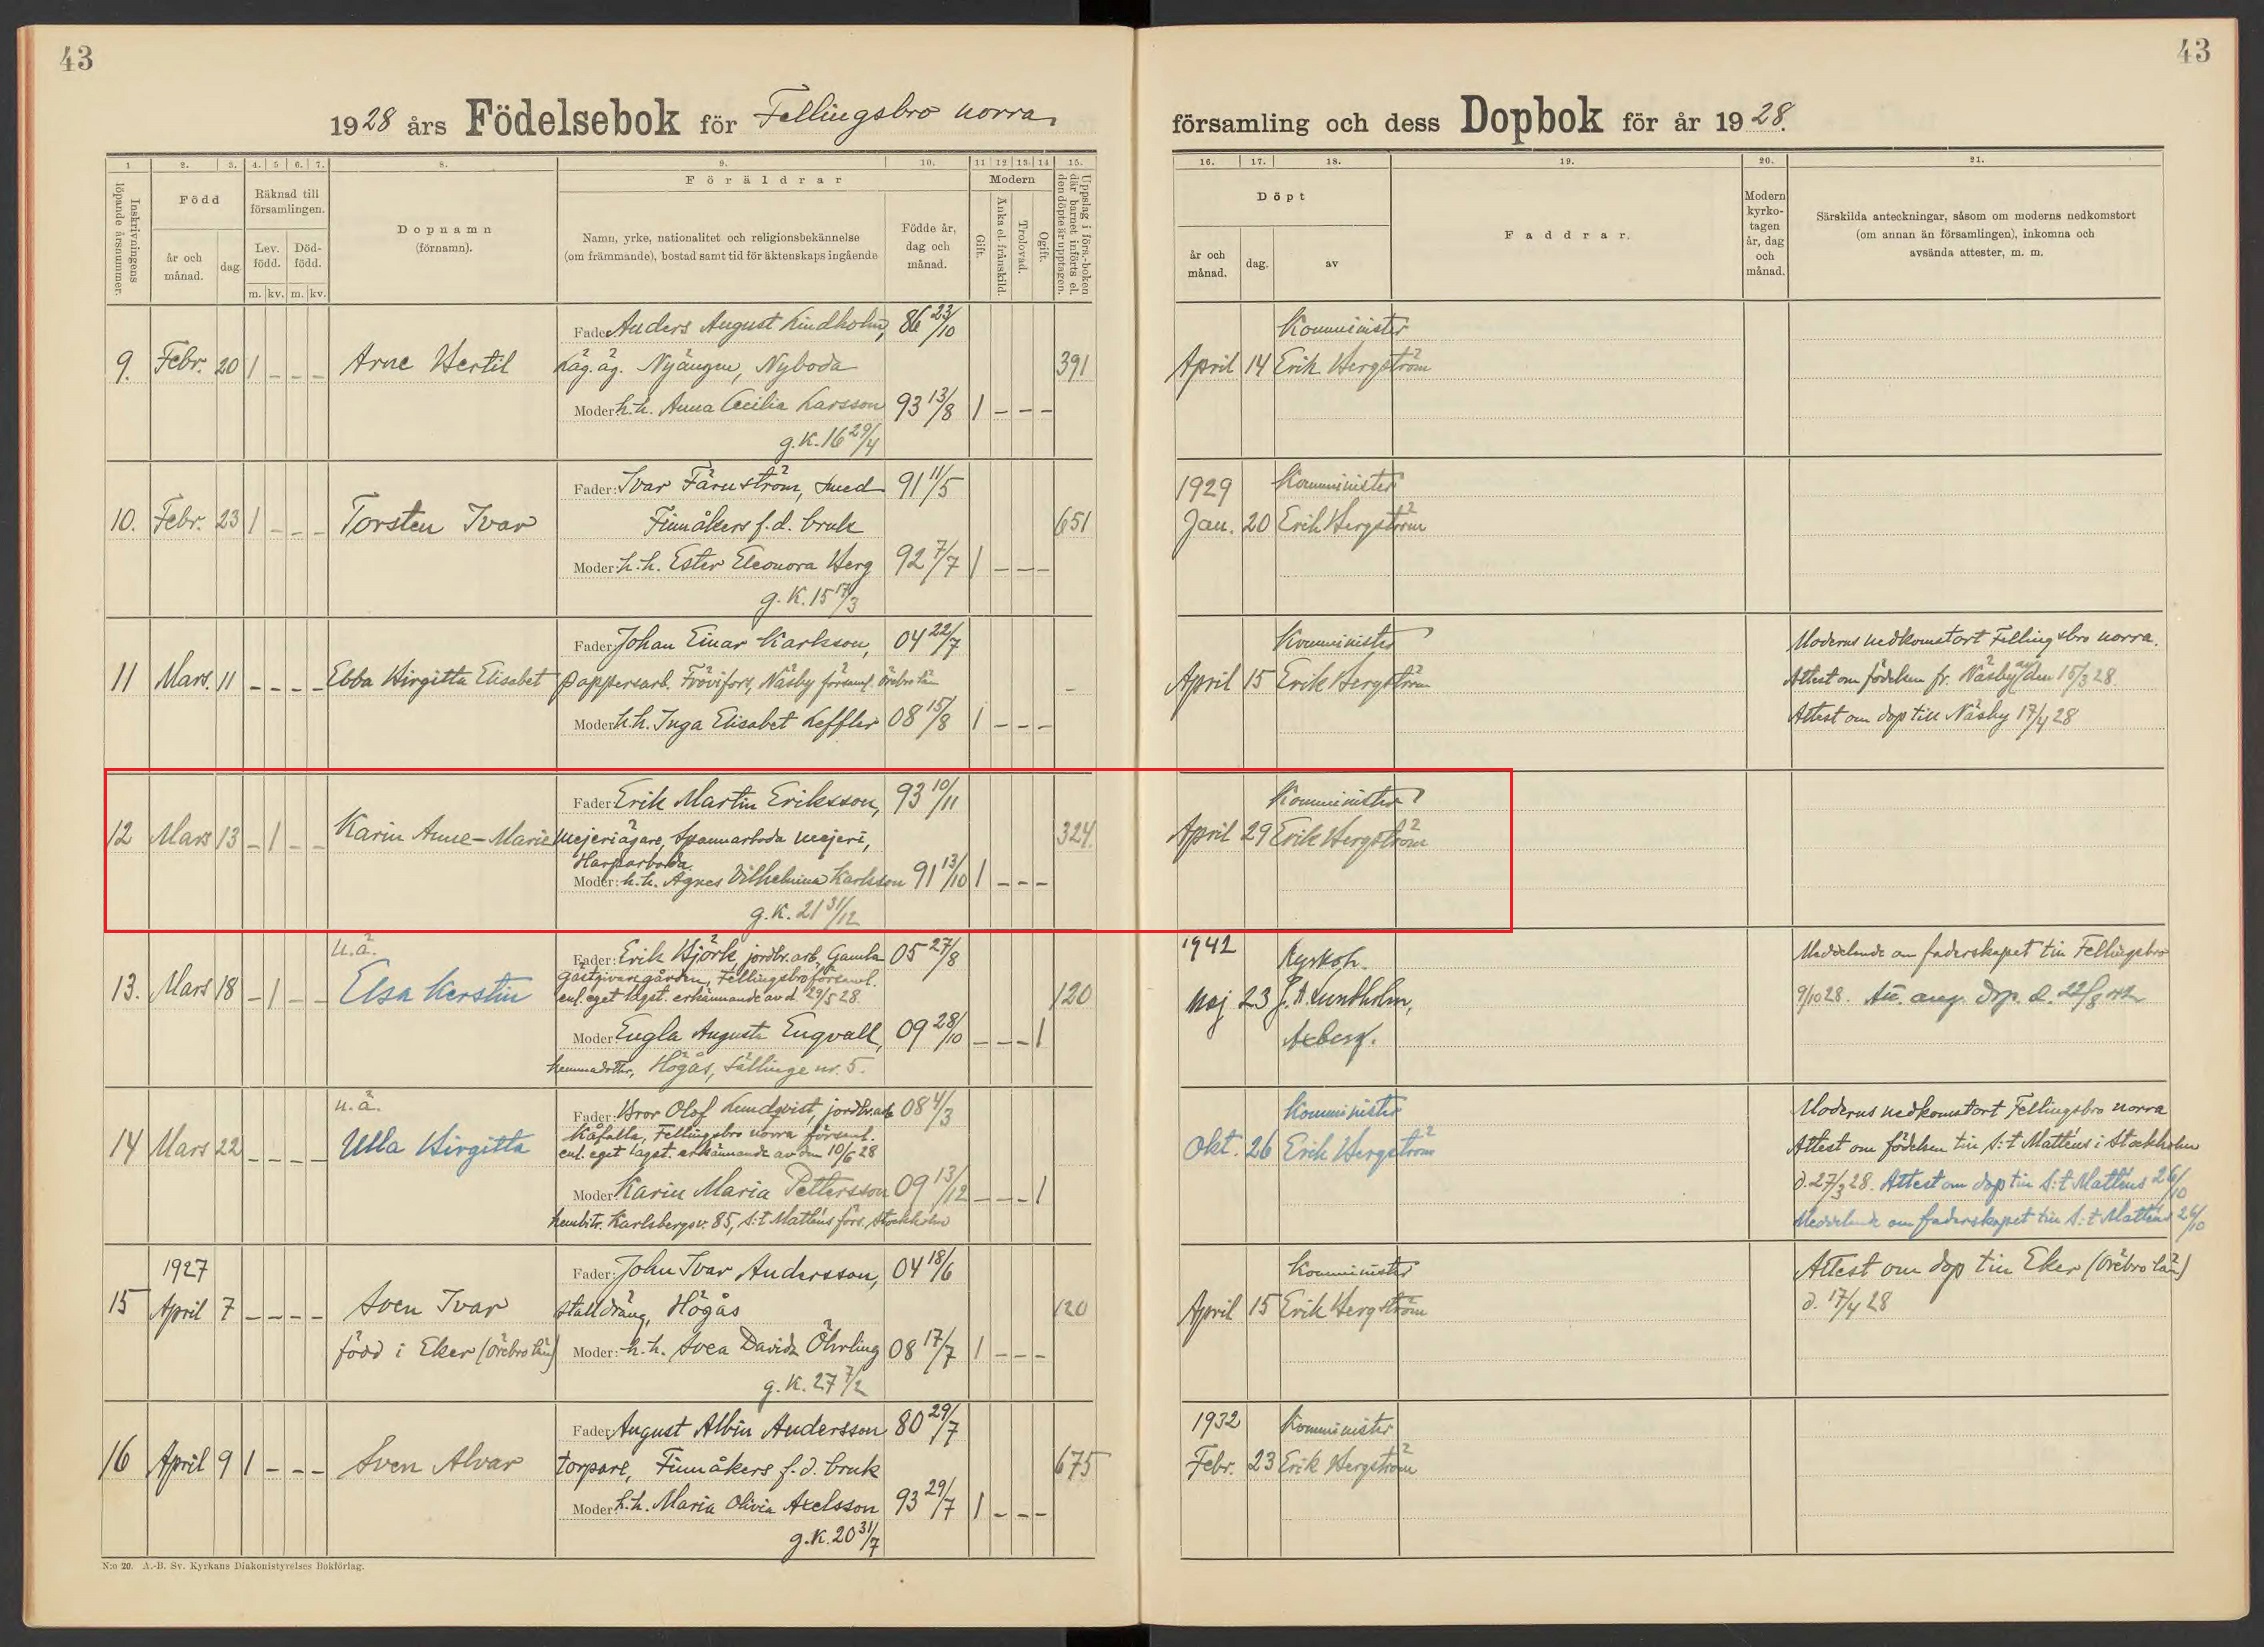 43
43
1928 års Födelsebok för Fellingsbro norra
församling och dess Dopbok för år 1928.
1 2. 3. 4. 5 6. 7. 8. 9. 10. 11 12 13. 14 15.
16. 17. 18. 19. 20. 21.
Inskrivningens löpande årsnummer.
Född
år och månad.
dag.
Räknad till församlingen.
Lev. född.
Död-född.
m. kv. m. kv.
Dopnamn
(förnamn).
Föräldrar
Namn, yrke, nationalitet och religionsbekännelse
(om främmande), bostad samt tid för äktenskaps ingående
Födde år,
dag och
månad.
Modern
Gift.
Änka el. frånskild.
Trolovad.
Ogift.
Uppslag i förs.-boken där barnet införts el. den döpte är upptagen.
Döpt
år och månad.
dag.
av
Faddrar.
Modern kyrko-tagen år, dag och månad.
Särskilda anteckningar, såsom om moderns nedkomstort
(om annan än församlingen), inkomna och
avsända attester, m. m.
Fader: Anders August Lindholm, 86 23/10
9. Febr. 20 1 - - - Arne Bertil
Läg.äg. Nyängen, Nyboda 391
Moder: h.h. Anna Cecilia Larsson 93 13/8 1 - - -
g.k. 16 29/4
Komminister
April 14 Erik Bergström
Fader: Ivar Färnström, smed 91 11/5
10. Febr. 23 1 - - - Torsten Ivar
Finnåkers f.d. bruk 651
Moder: h.h. Ester Eleonora Berg 92 7/7 1 - - -
g.k. 15 17/3
1929 Komminister
Jan. 20 Erik Bergström
Fader: Johan Einar Karlsson, 04 22/7
11 Mars. 11 - - - - Ebba Birgitta Elisabet
pappersarb. Frövifors, Näsby församl. Örebro län -
Moder: h.h. Inga Elisabet Leffler 08 15/8 1 - - -
Komminister
April 15 Erik Bergström
Moderns nedkomstort Fellingsbro norra.
Attest om födelsen fr. Näsby av den 15/3 28
Attest om dop till Näsby 17/4 28
Fader: Erik Martin Eriksson, 93 10/11
12 Mars 13 - 1 - - Karin Anne-Marie
mejeriägare, Spannarboda mejeri, 324.
Harparboda
Moder: h.h. Agnes Vilhelmina Karlsson 91 13/10 1 - - -
g.k. 21 31/12
Komminister
April 29 Erik Bergström
u.ä.
13. Mars 18 - 1 - - Elsa Kerstin
Fader: Erik Björk, jordbr.arb, Gamla 05 27/8
gästgivaregården, Fellingsbro församl.
enl. eget utget. erkännande av d. 29/5 28. 120
Moder: Engla Augusta Engvall, 09 28/10 - - - 1
hemmadotter, Högås, Sällinge nr. 5.
1942 Kyrkoh.
Maj 23 J.A. Lundholm,
Axberg.
Meddelande om faderskapet till Fellingsbro
9/10 28. Att. ang. dop. d. 22/8 42
u.ä.
14 Mars 22 - - - - Ulla Birgitta
Fader: Bror Olof Lundqvist, jordbr.arb 08 4/3
Kåfalla, Fellingsbro norra församl.
enl. eget utget. erkännande av den 10/6 28
Moder: Karin Maria Pettersson 09 13/12 - - - 1
hembitr. Karlbergsv. 85, S:t Mattéus förs. Stockholm
Komminister
Okt. 26 Erik Bergström
Moderns nedkomstort Fellingsbro norra
Attest om födelsen till S:t Mattéus i Stockholm
d. 27/3 28. Attest om dop till S:t Mattéus 26/10
Meddelande om faderskapet till S:t Mattéus 26/10
1927
15 April 7 - - - - Sven Ivar
född i Eker (Örebro län)
Fader: John Ivar Andersson, 04 18/6
stalldräng, Högås 120
Moder: h.h. Svea Davida Öhrling 08 17/7 1 - - -
g.k. 27 7/2
Komminister
April 15 Erik Bergström
Attest om dop till Eker (Örebro län)
d. 17/4 28
Fader: August Albin Andersson 80 29/7
16 April 9 1 - - - Sven Alvar
torpare, Finnåkers f.d. bruk 675
Moder: h.h. Maria Olivia Axelsson 93 29/7 1 - - -
g.k. 20 31/7
1932 Komminister
Febr. 23 Erik Bergström
N:o 20. A.-B. Sv. Kyrkans Diakonistyrelses Bokförlag.